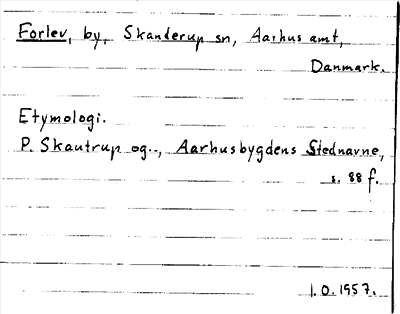 Forlev, by, Skanderup sn, Aarhus amt,
Danmark.
Etymologi.
P. Skautrup og.., Aarhusbygdens Stednavne,
s. 88 f.
J.O. 1957.